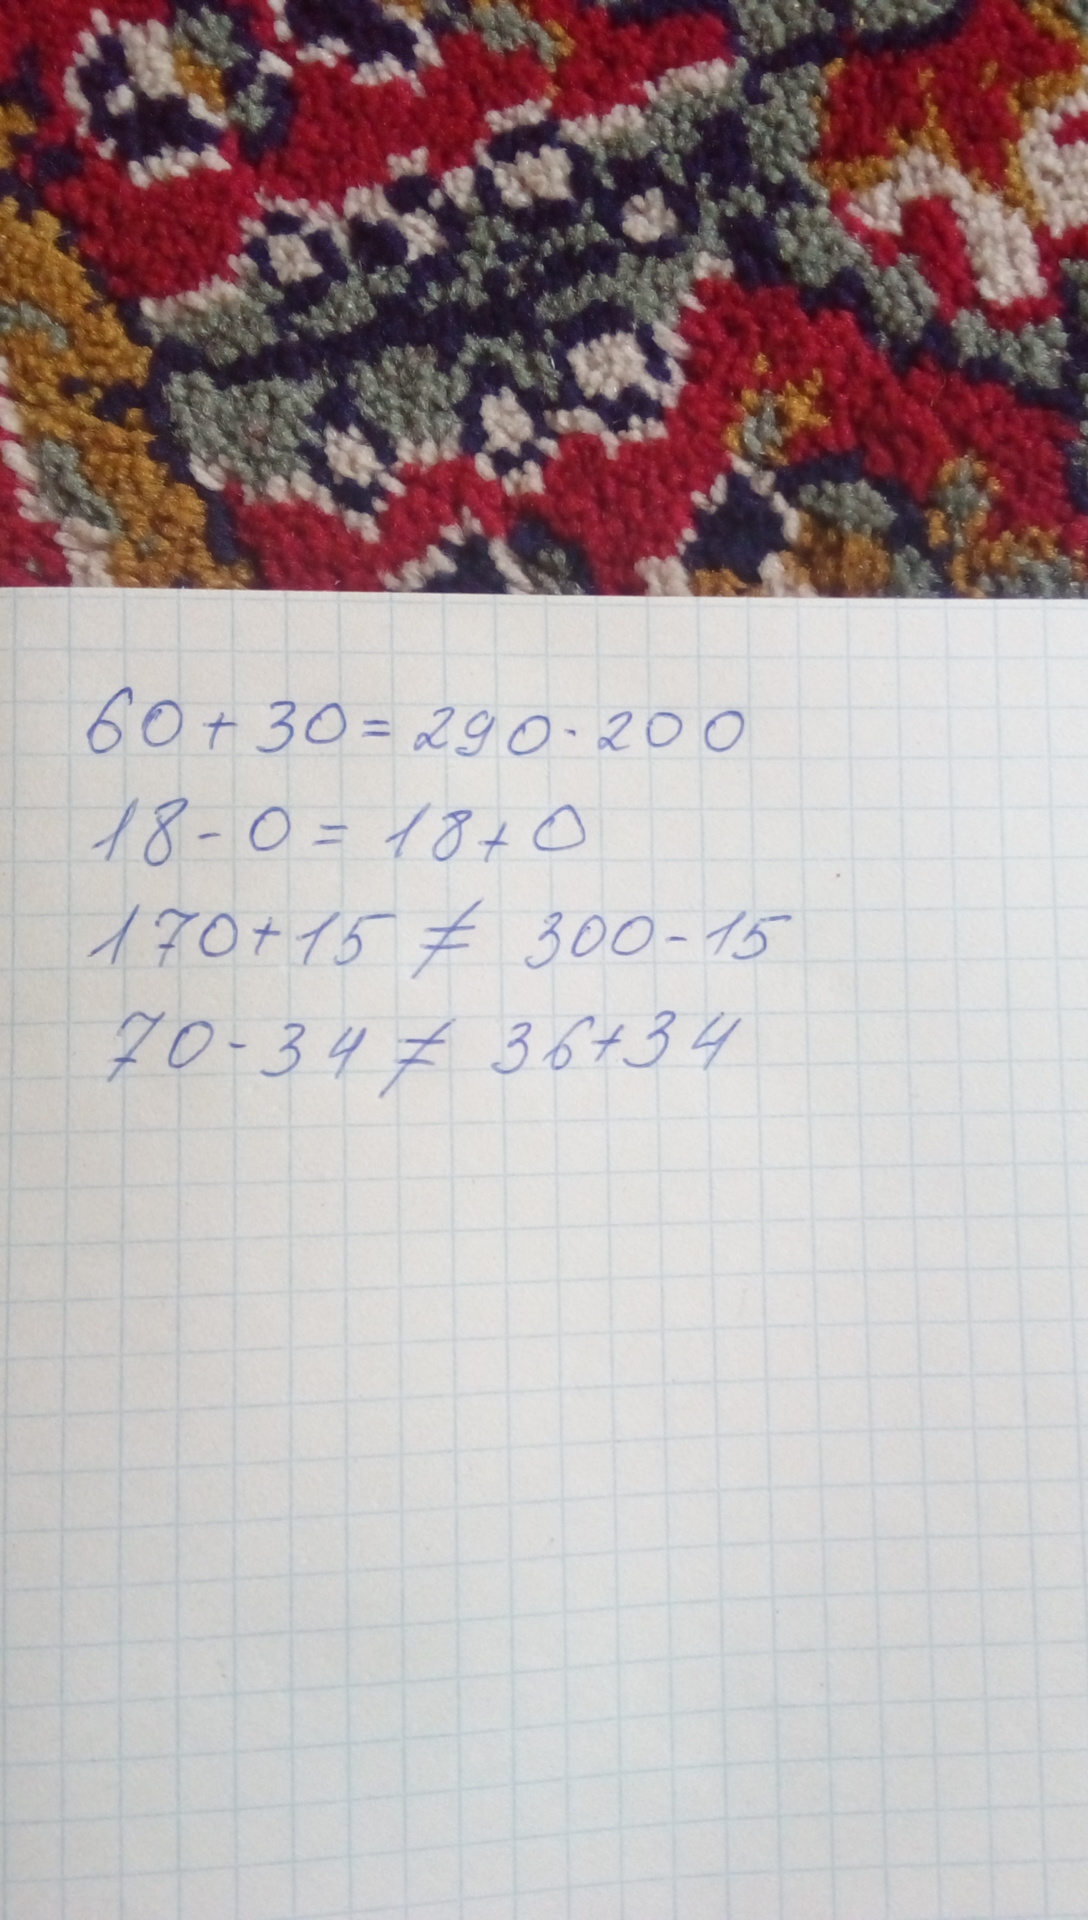 60 + 30 = 290 - 200
18 - 0 = 18 + 0
170 + 15 ≠ 300 - 15
70 - 34 ≠ 36 + 34